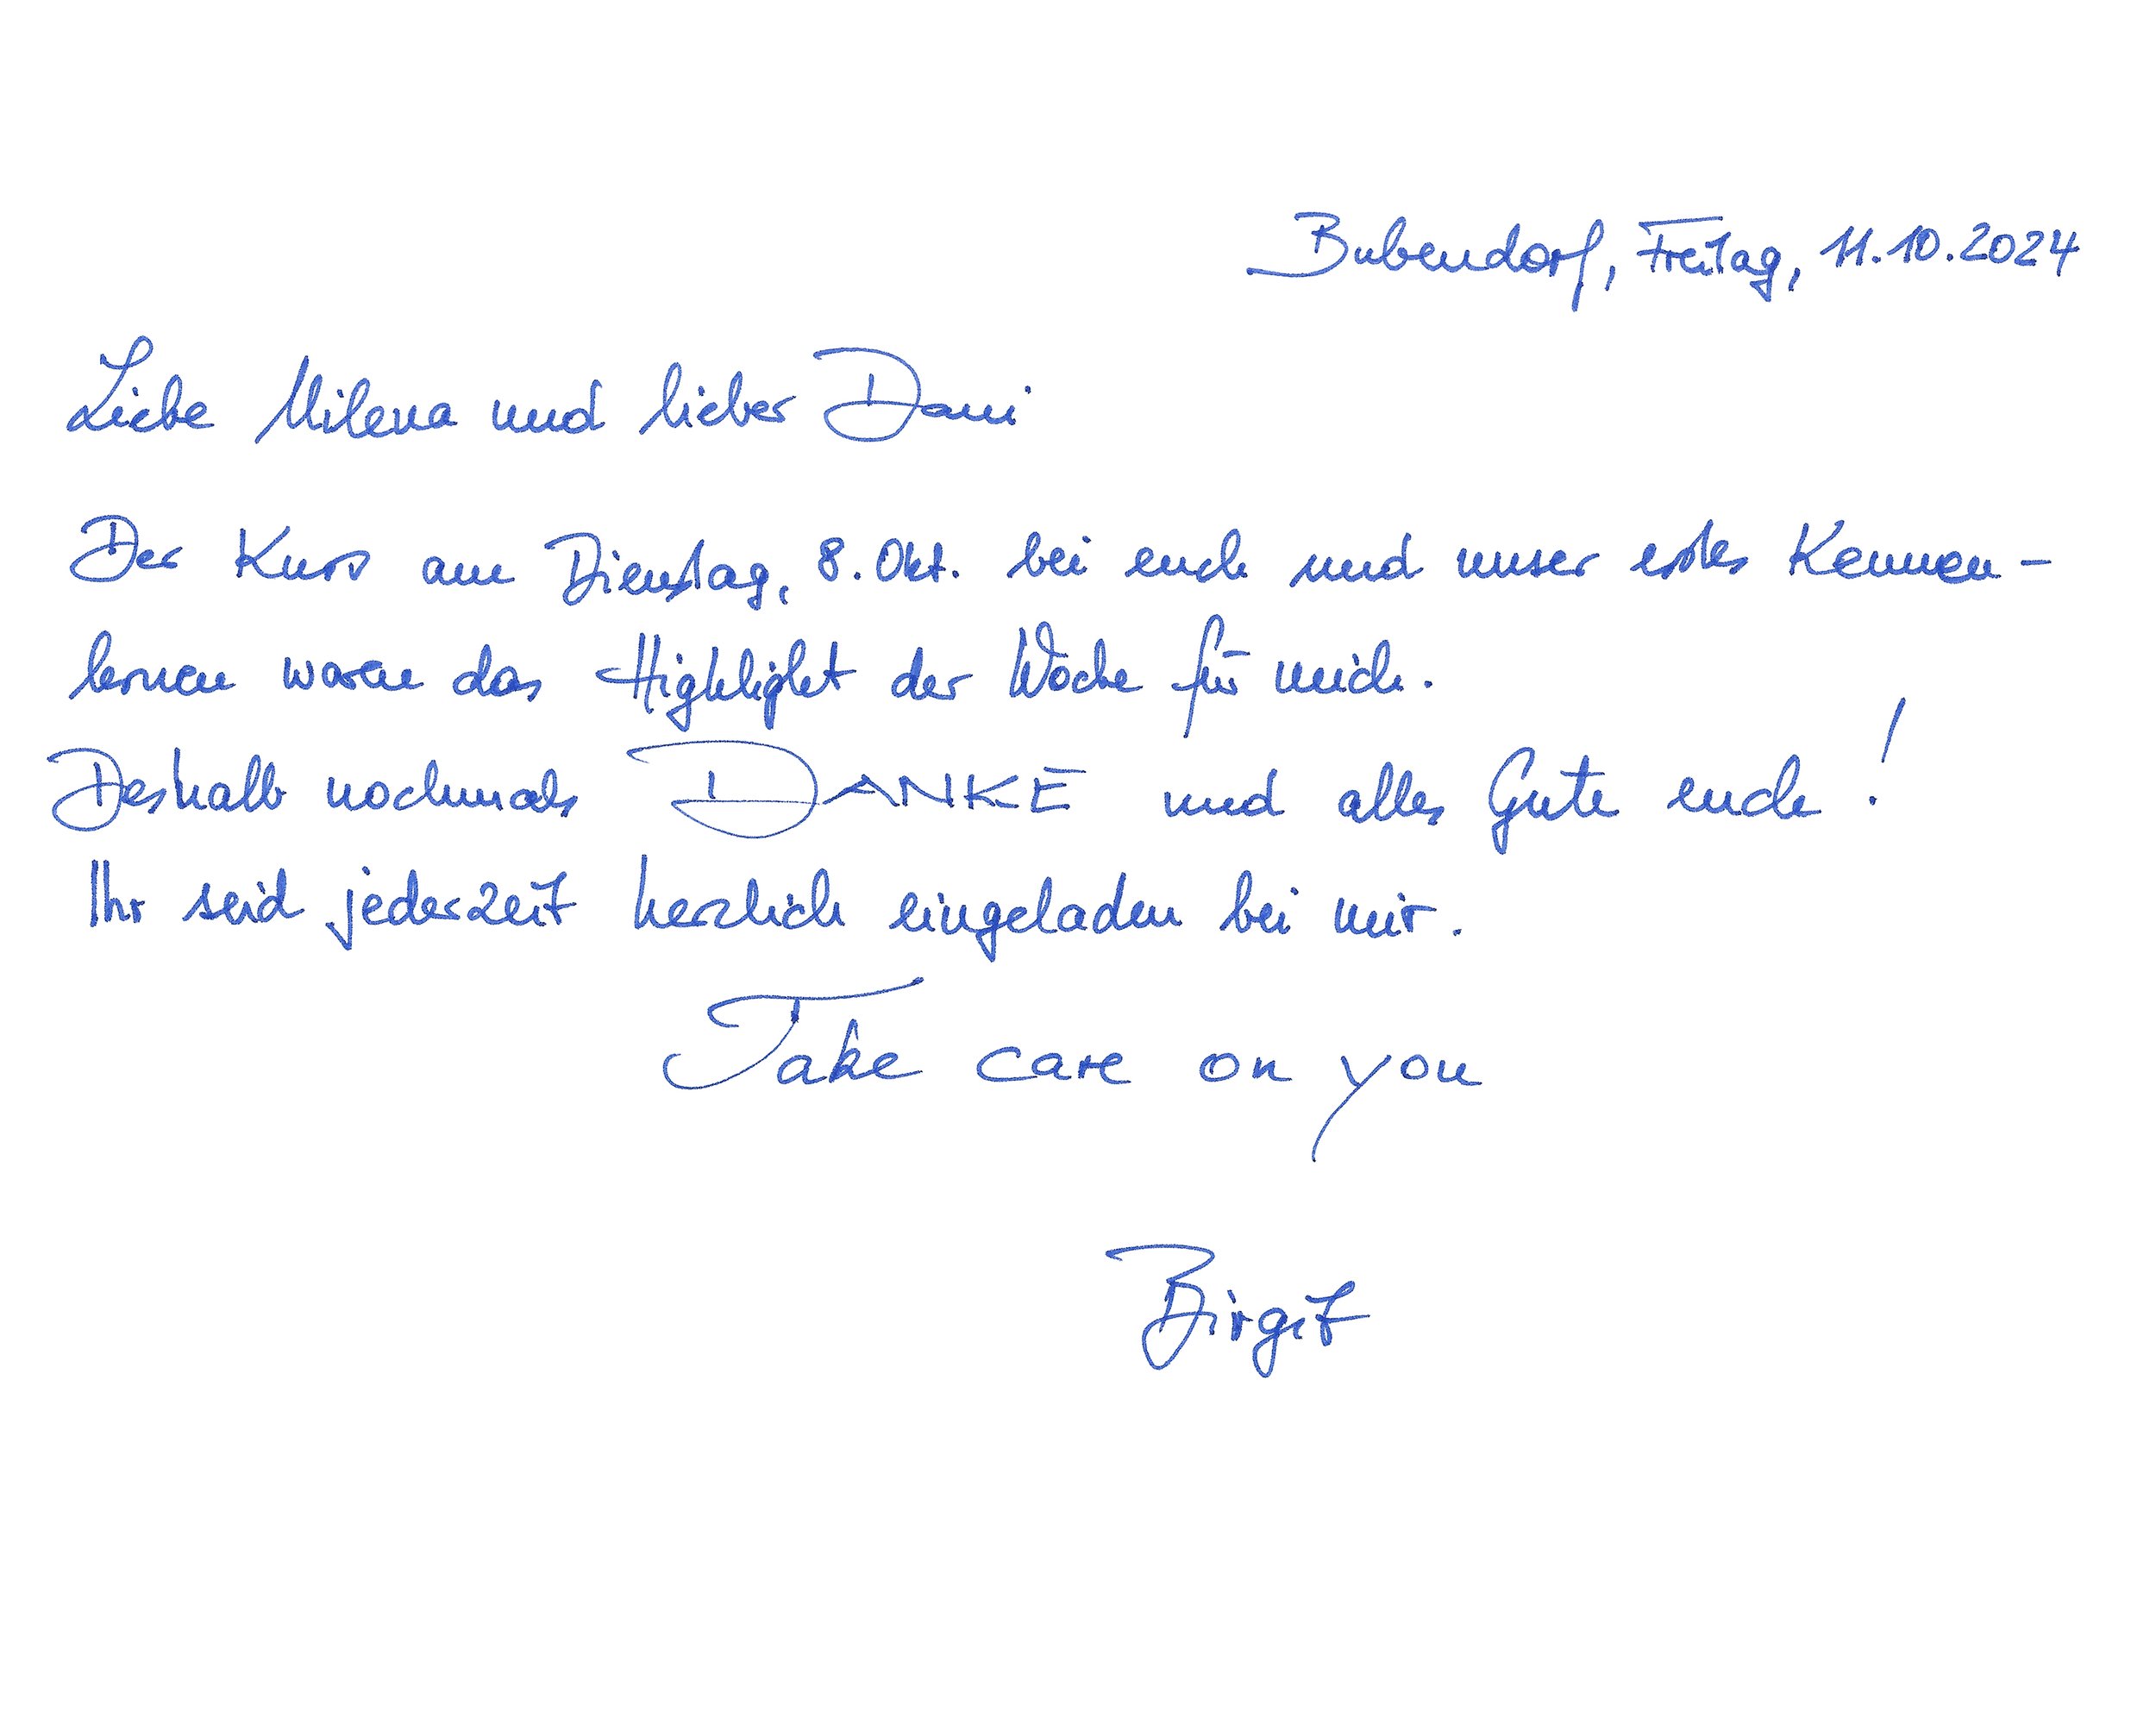 Bubendorf, Freitag, 11.10.2024
Liebe Milena und lieber Dani
Der Kurs am Dienstag, 8. Okt. bei euch und unser erstes Kennen-
lernen waren das Highlight der Woche für mich.
Deshalb nochmals DANKE und alles Gute euch!
Ihr seid jederzeit herzlich eingeladen bei mir.
Take care on you
Birgit